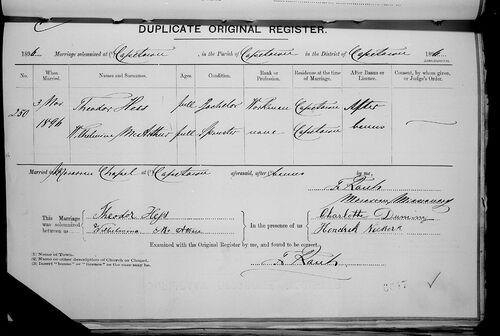 DUPLICATE ORIGINAL REGISTER.
1896 Marriage solemnized at Capetown, in the Parish of Capetown in the District of Capetown 1896
No. When Married. Names and Surnames. Ages. Condition. Rank or Profession. Residence at the time of Marriage. After Banns or Licence. Consent, by whom given, or Judge's Order.
3 Mar Theodor Hess full Bachelor Workman Capetown After
250
1896 Wilhelmina McArthur full Spinster none Capetown banns
Married in Moravian Chapel at (1) Capetown aforesaid, after Banns by me,
F. Rauh
Moravian Missionary
This Marriage was solemnized between us Theodor Hess In the presence of us Charlotte
Wilhelmina Mc Hendrik
Examined with the Original Register by me, and found to be correct.
F. Rauh
(1) Name of Town.
(2) Name or other description of Church or Chapel.
(3) Insert "banns" or "licence" as the case may be.